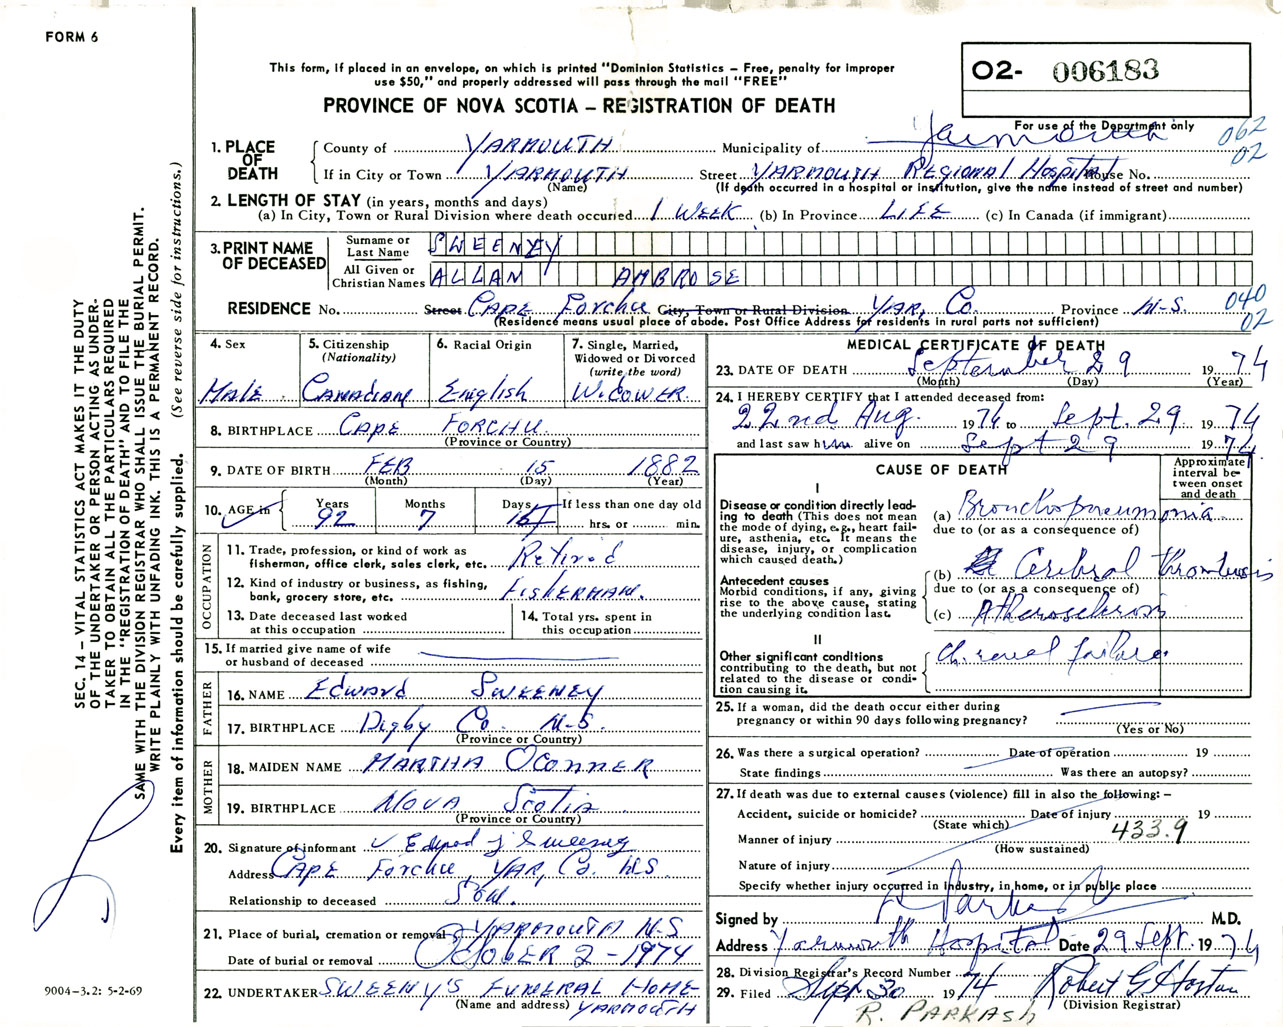 FORM 6
This form, if placed in an envelope, on which is printed "Dominion Statistics – Free, penalty for improper
use $50," and properly addressed will pass through the mail "FREE"
PROVINCE OF NOVA SCOTIA – REGISTRATION OF DEATH
O2- 006183
For use of the Department only
062
02
1. PLACE OF DEATH
County of YARMOUTH Municipality of Yarmouth
If in City or Town YARMOUTH Street YARMOUTH REGIONAL Hospital House No.
(Name) (If death occurred in a hospital or institution, give the name instead of street and number)
2. LENGTH OF STAY (in years, months and days)
(a) In City, Town or Rural Division where death occurred 1 WEEK (b) In Province LIFE (c) In Canada (if immigrant)
3. PRINT NAME OF DECEASED
Surname or Last Name SWEENEY
All Given or Christian Names ALLAN AMBROSE
RESIDENCE No. Street CAPE Forchu City, Town or Rural Division YAR, Co. Province N-S.
040
02
(Residence means usual place of abode. Post Office Address for residents in rural parts not sufficient)
4. Sex MALE
5. Citizenship (Nationality) CANADIAN
6. Racial Origin English
7. Single, Married, Widowed or Divorced (write the word) WIDOWER
8. BIRTHPLACE CAPE FORCHU.
(Province or Country)
9. DATE OF BIRTH FEB 15 1882
(Month) (Day) (Year)
10. AGE in Years 92 Months 7 Days If less than one day old hrs. or min.
OCCUPATION
11. Trade, profession, or kind of work as fisherman, office clerk, sales clerk, etc. Retired
12. Kind of industry or business, as fishing, bank, grocery store, etc. FISHERMAN.
13. Date deceased last worked at this occupation
14. Total yrs. spent in this occupation
15. If married give name of wife or husband of deceased
FATHER
16. NAME EDWARD SWEENEY
17. BIRTHPLACE Digby Co. N-S.
(Province or Country)
MOTHER
18. MAIDEN NAME MARTHA OCONNER
19. BIRTHPLACE NOVA SCOTIA
(Province or Country)
20. Signature of informant Edward J Sweeney
Address CAPE Forchu, YAR, Co. N.S
Relationship to deceased SON.
21. Place of burial, cremation or removal YARMOUTH N-S
Date of burial or removal OCTOBER 2-1974
22. UNDERTAKER SWEENY'S FUNERAL HOME
(Name and address) YARMOUTH
MEDICAL CERTIFICATE OF DEATH
23. DATE OF DEATH September 29 1974
(Month) (Day) (Year)
24. I HEREBY CERTIFY that I attended deceased from:
22nd Aug. 1974 to Sept. 29 1974
and last saw him alive on Sept 29 1974
CAUSE OF DEATH
Approximate interval between onset and death
I
Disease or condition directly leading to death (This does not mean the mode of dying, e.g., heart failure, asthenia, etc. It means the disease, injury, or complication which caused death.)
(a) Bronchopneumonia
due to (or as a consequence of)
Antecedent causes
Morbid conditions, if any, giving rise to the above cause, stating the underlying condition last.
(b) Cerebral thrombosis
due to (or as a consequence of)
(c) Atherosclerosis
II
Other significant conditions contributing to the death, but not related to the disease or condition causing it.
Ch. renal failure
25. If a woman, did the death occur either during pregnancy or within 90 days following pregnancy?
(Yes or No)
26. Was there a surgical operation? Date of operation 19
State findings Was there an autopsy?
27. If death was due to external causes (violence) fill in also the following: –
Accident, suicide or homicide? Date of injury 19
(State which)
433.9
Manner of injury
(How sustained)
Nature of injury
Specify whether injury occurred in industry, in home, or in public place
Signed by R Parkash M.D.
Address Yarmouth Hospital Date 29 Sept. 1974
28. Division Registrar's Record Number
29. Filed Sept 30 1974
(Division Registrar)
R. PARKASH
SEC. 14 – VITAL STATISTICS ACT MAKES IT THE DUTY
OF THE UNDERTAKER OR PERSON ACTING AS UNDER-
TAKER TO OBTAIN ALL THE PARTICULARS REQUIRED
IN THE "REGISTRATION OF DEATH" AND TO FILE THE
SAME WITH THE DIVISION REGISTRAR WHO SHALL ISSUE THE BURIAL PERMIT.
WRITE PLAINLY WITH UNFADING INK. THIS IS A PERMANENT RECORD.
Every item of information should be carefully supplied. (See reverse side for instructions.)
9004-3.2: 5-2-69